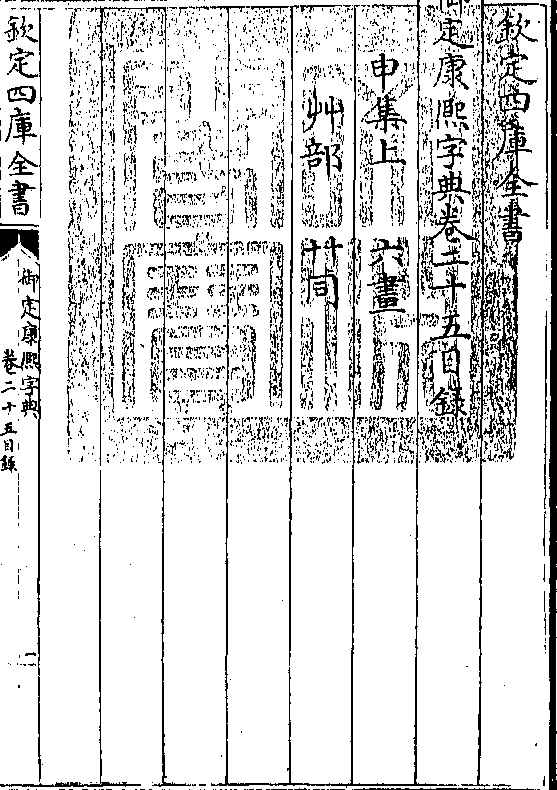 欽定四庫全書
御定康熙字典卷二十五目錄
申集上 六畫
艸部 艹同
欽定四庫全書
御定康熙字典
卷二十五目錄
一